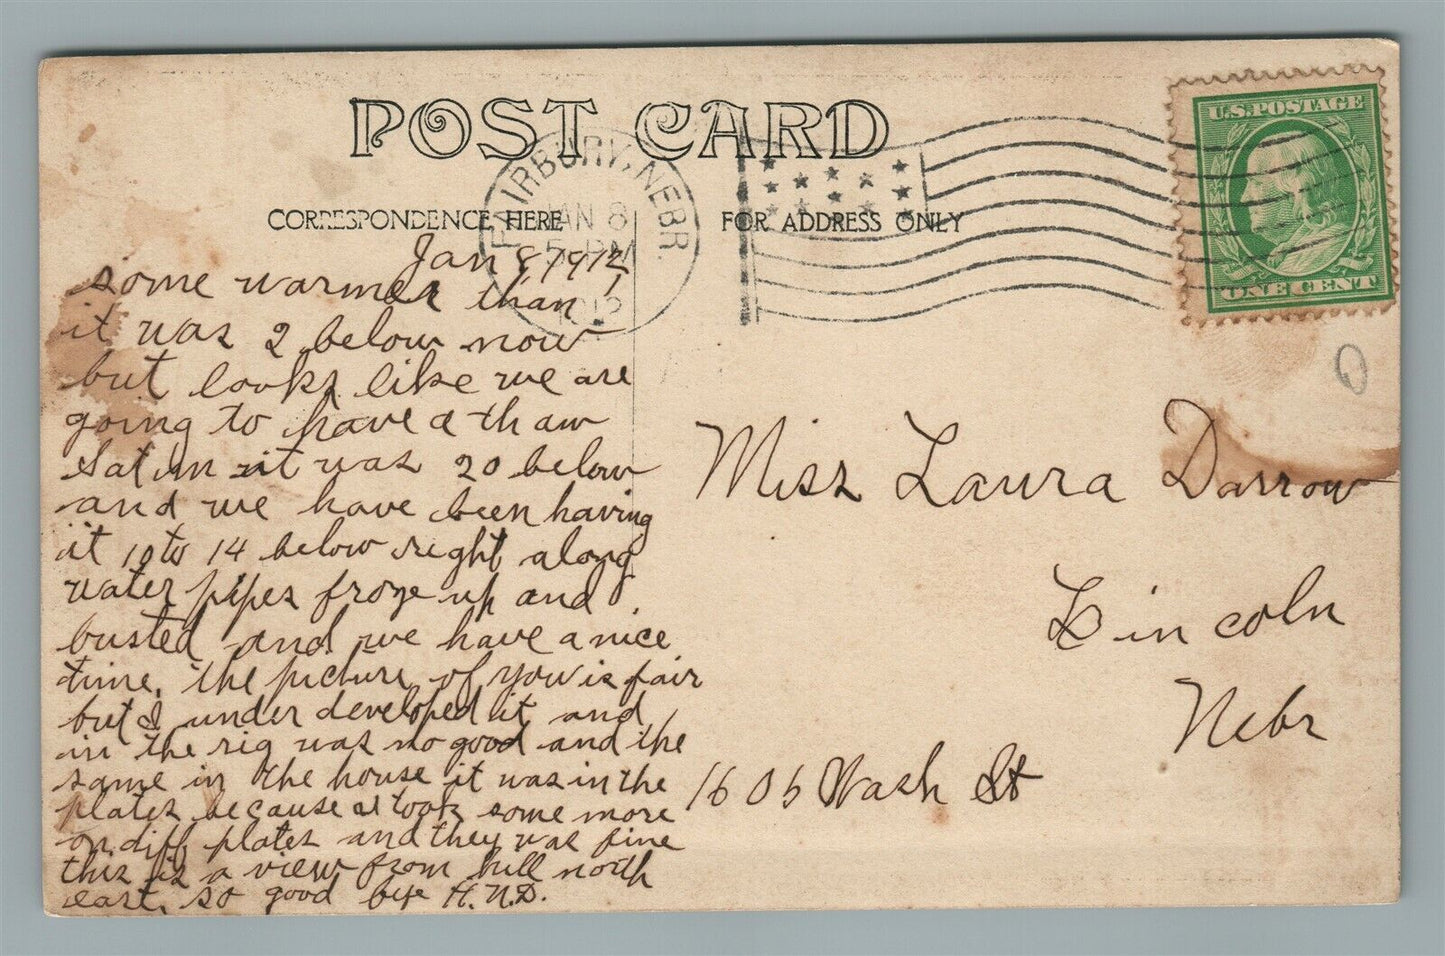 POST CARD
FAIRBURY, NEBR.
JAN 8
5 PM
1912
U.S. POSTAGE
ONE CENT
CORRESPONDENCE HERE
FOR ADDRESS ONLY
Jan 8, 1912,
some warmer than
it was 2 below now
but looks like we are
going to have a thaw
Sat it was 20 below
and we have been having
it 10 to 14 below right along
water pipes froze up and
busted and we have a nice
time. the picture of you is fair
but I under developed it and
in the rig was no good and the
same in the house it was in the
plates because I took some more
on diff plates and they was fine
this is a view from hill north
east. so good bye H.N.D.
Miss Laura Darrow
Lincoln
Nebr
1606 Wash St